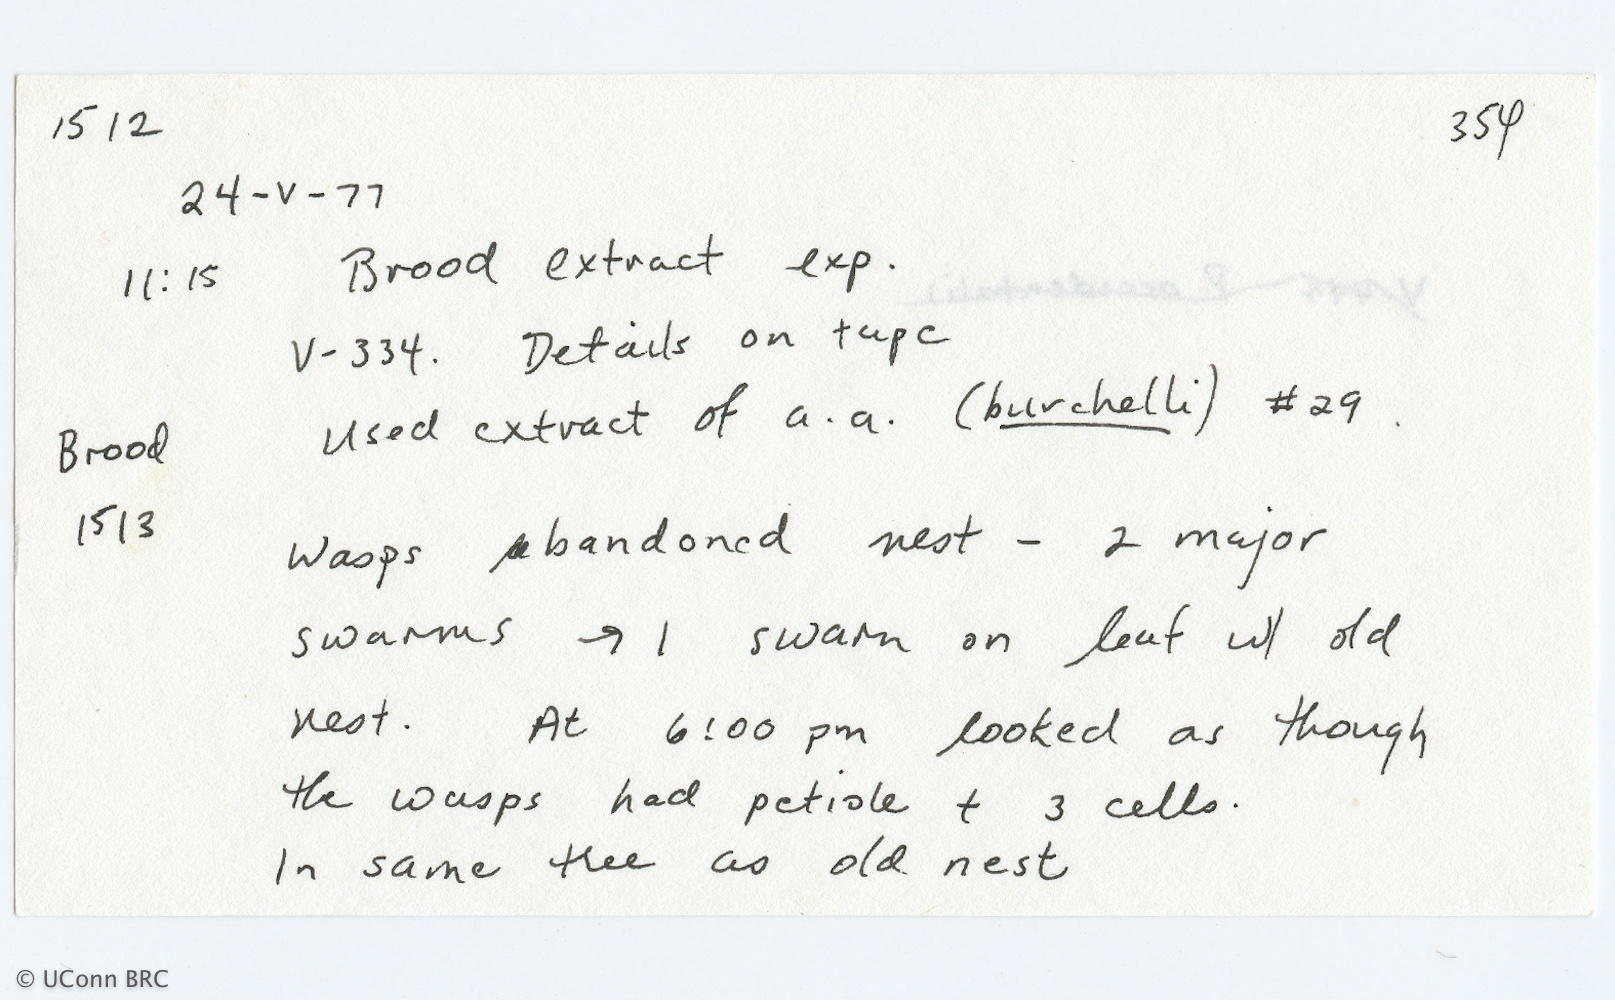 1512 354
24-V-77
11:15 Brood extract exp.
V-334. Details on tape
Used extract of a.a. (burchelli) #29.
Brood
1513
Wasps abandoned nest - 2 major
swarms → 1 swarm on leaf w/ old
nest. At 6:00 pm looked as though
the wasps had petiole + 3 cells.
In same tree as old nest
© UConn BRC